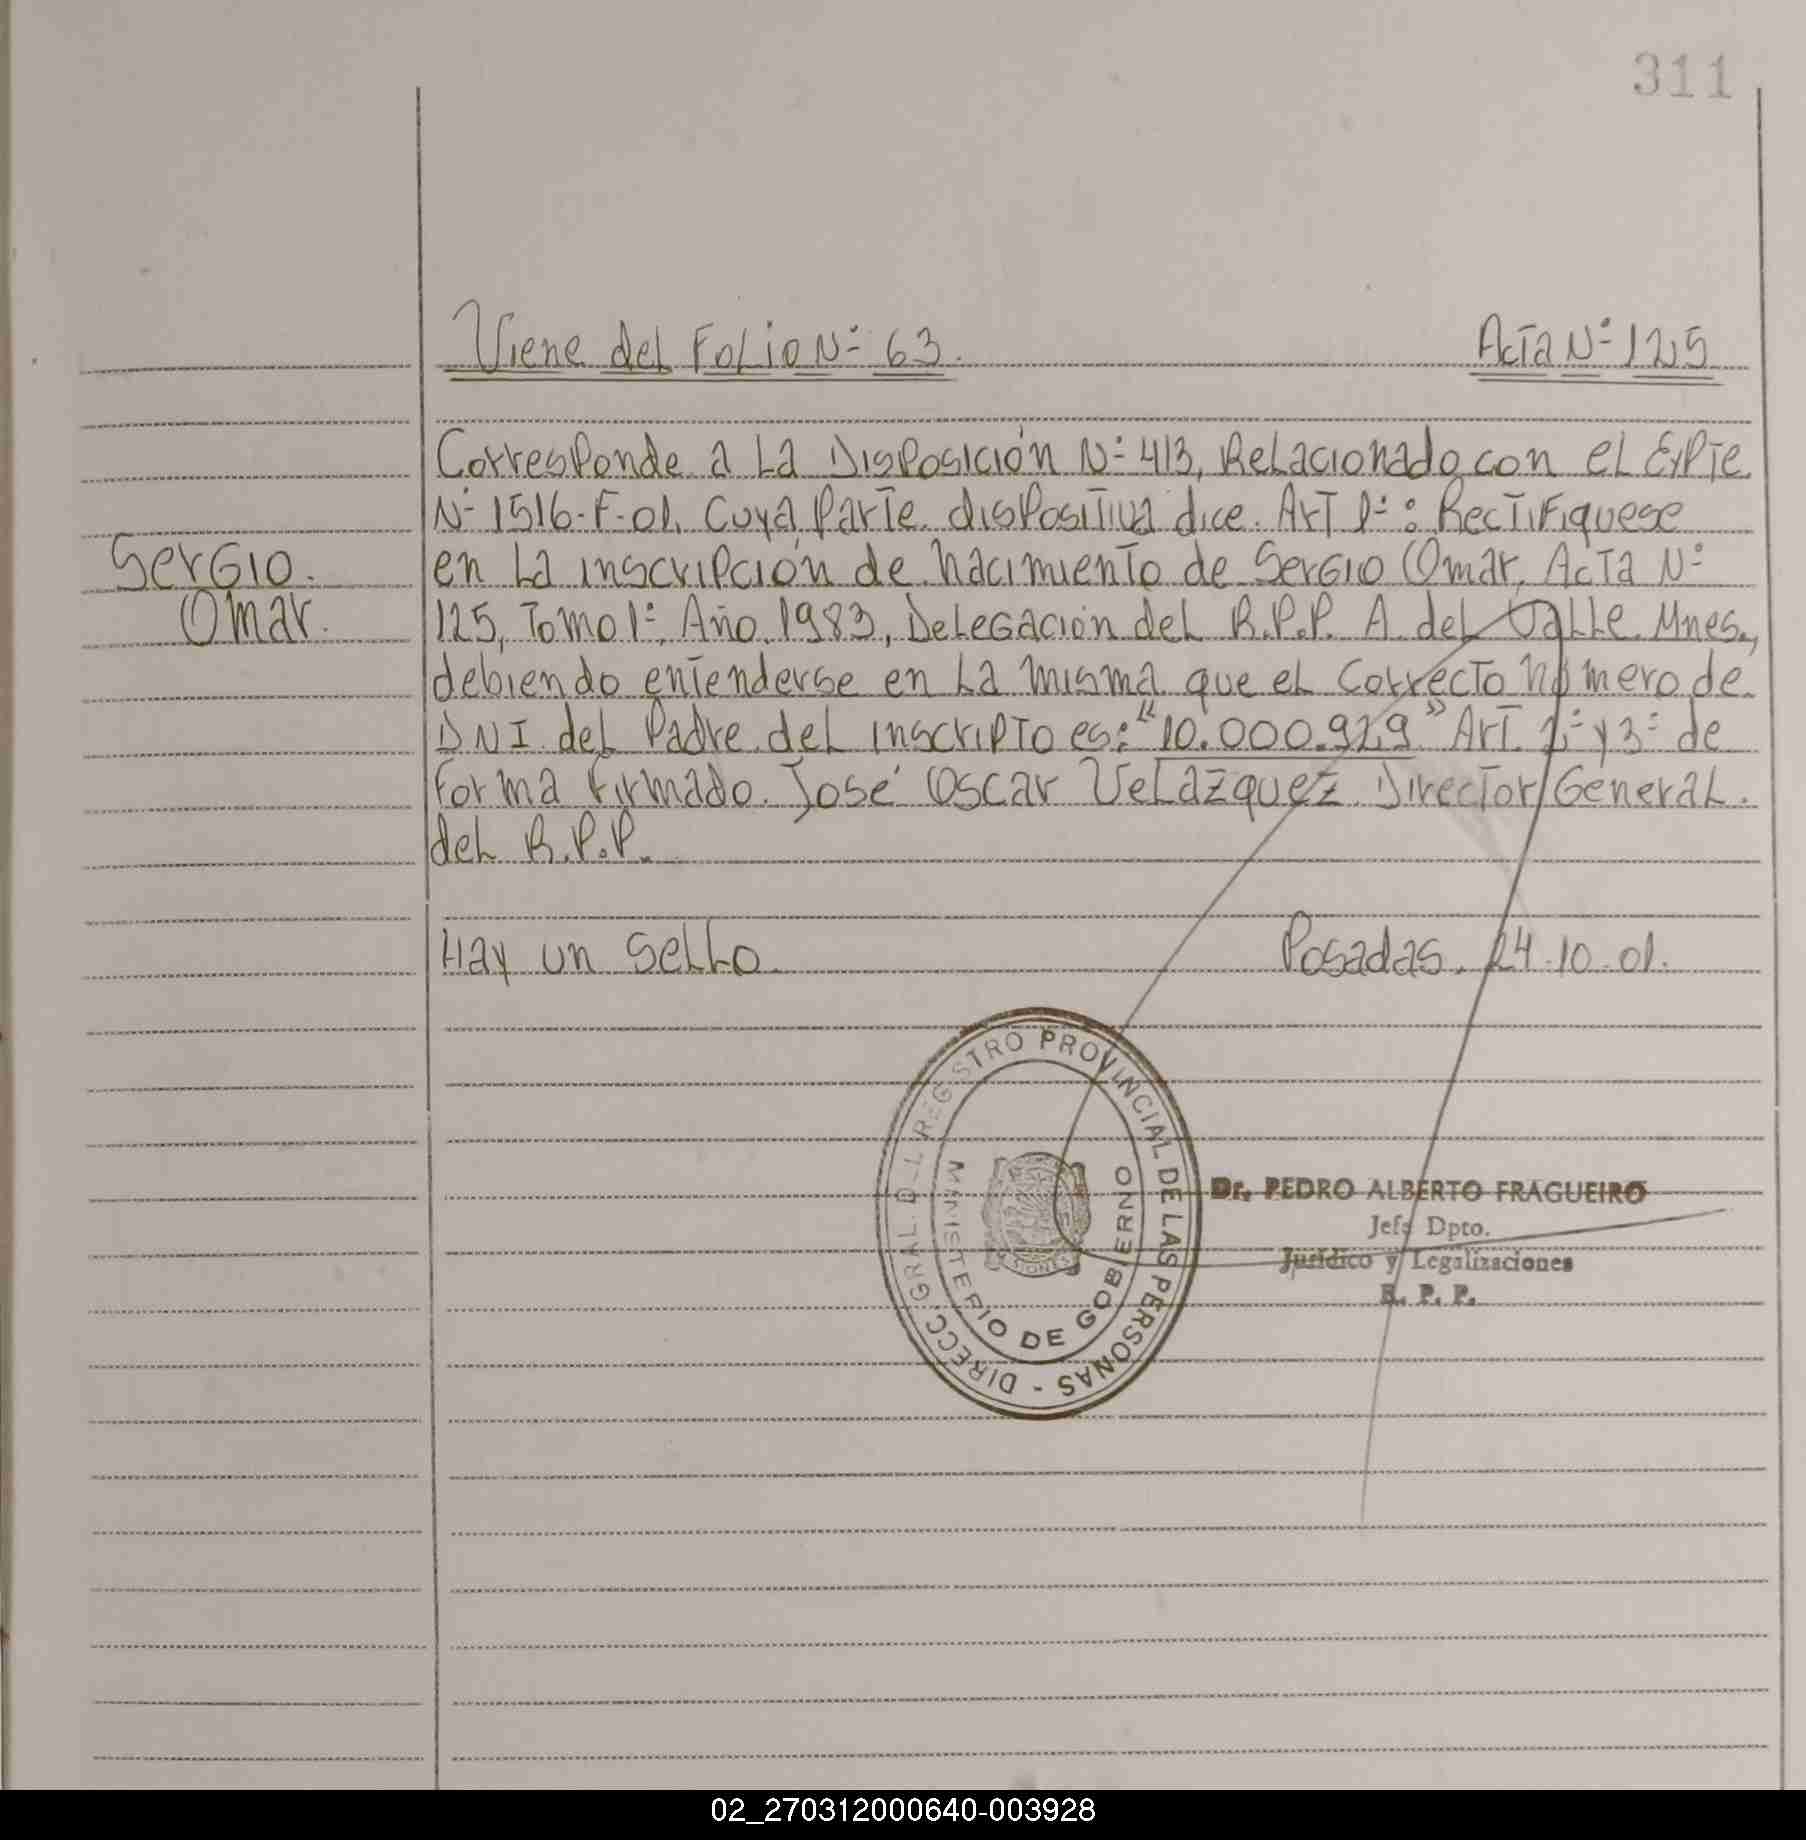 311
Viene del Folio N° 63. Acta N° 125
Corresponde a La Disposición N° 413, Relacionado con el Expte.
N° 1516-F-01. Cuya Parte dispositiva dice. Art 1° : Rectifiquese
Sergio. en La inscripción de nacimiento de Sergio Omar, Acta N°
Omar. 125, Tomo 1°, Año 1983, Delegación del R.P.P. A. del Valle. Mnes.,
debiendo entenderse en La misma que el Correcto número de
DNI del Padre del inscripto es: "10.000.929" Art. 2° y 3° de
forma firmado. José Oscar Velazquez. Director General.
del R.P.P.
Hay un Sello. Posadas. 24.10.01.
DIRECC. GRAL. DEL REGISTRO PROVINCIAL DE LAS PERSONAS -
MINISTERIO DE GOBIERNO
MISIONES
Dr. PEDRO ALBERTO FRAGUEIRO
Jefe Dpto.
Jurídico y Legalizaciones
R. P. P.
02_270312000640-003928